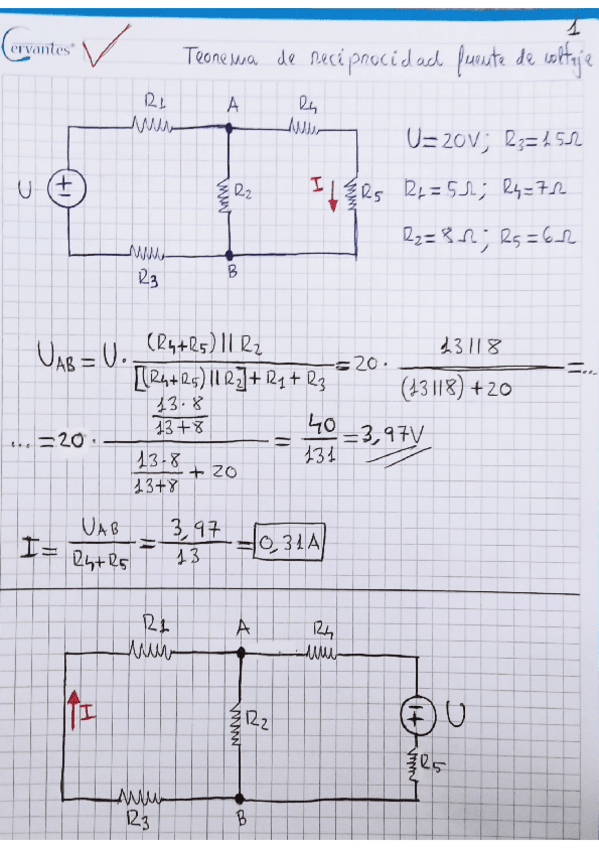 1
Cervantes
Teorema de reciprocidad fuente de voltaje
R1 A R4
U=20V; R3=15Ω
U R2 I R5 R1=5Ω; R4=7Ω
R2=8Ω; R5=6Ω
R3 B
UAB = U · (R4+R5)||R2 / [(R4+R5)||R2]+R1+R3 = 20 · 13||8 / (13||8)+20 = ...
... = 20 · (13·8 / 13+8) / (13·8 / 13+8 + 20) = 40 / 131 = 3,97V
I = UAB / R4+R5 = 3,97 / 13 = 0,31A
R1 A R4
I R2 U
R5
R3 B